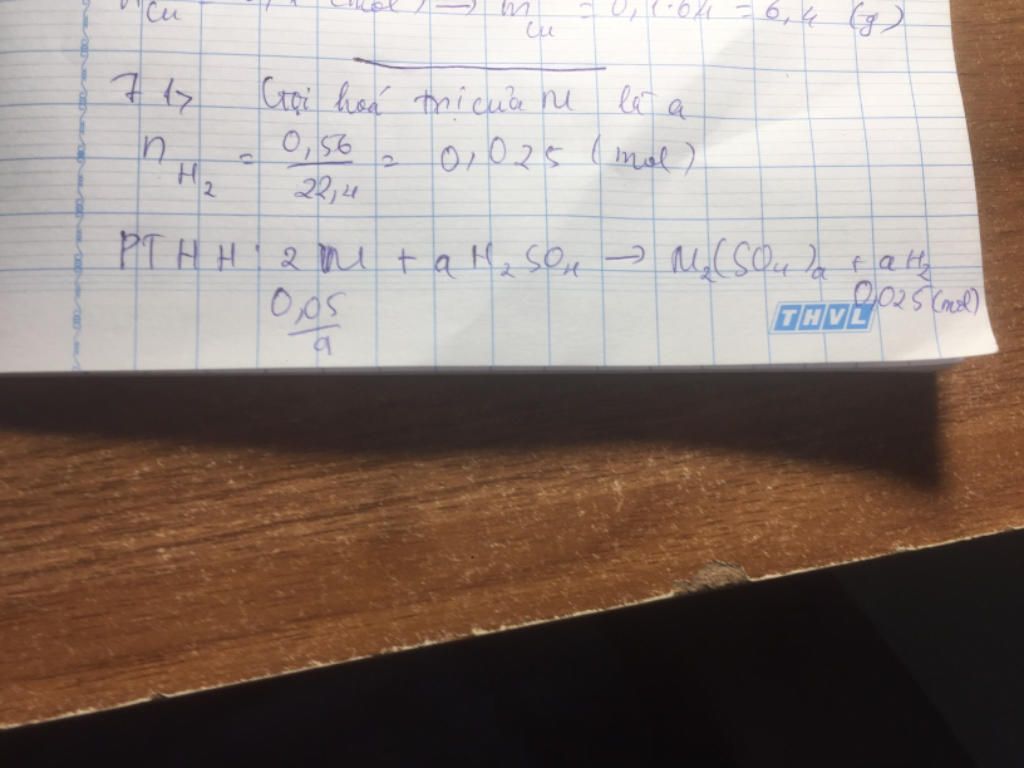 m Cu = 0,1.64 = 6,4 (g)
7 1> Gọi hoá trị của M là a
n H2 = 0,56/22,4 = 0,025 (mol)
PTHH: 2M + aH2SO4 → M2(SO4)a + aH2
0,05/a 0,025 (mol)
THVL